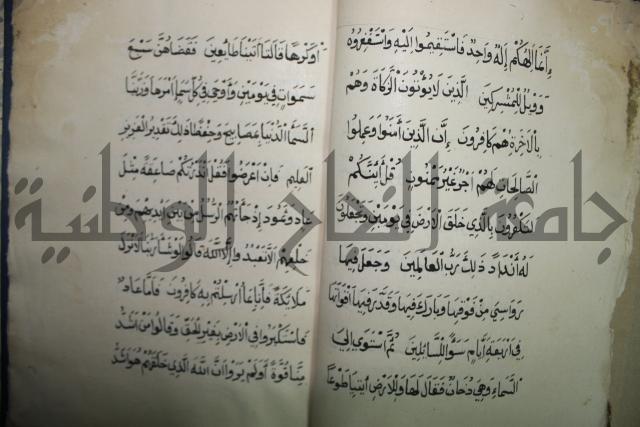 إِنَّمَا إِلَهُكُمْ إِلَهٌ وَاحِدٌ فَاسْتَقِيمُوا إِلَيْهِ وَاسْتَغْفِرُوهُ
وَوَيْلٌ لِلْمُشْرِكِينَ الَّذِينَ لَا يُؤْتُونَ الزَّكَاةَ وَهُمْ
بِالْآخِرَةِ هُمْ كَافِرُونَ إِنَّ الَّذِينَ آمَنُوا وَعَمِلُوا
الصَّالِحَاتِ لَهُمْ أَجْرٌ غَيْرُ مَمْنُونٍ قُلْ أَئِنَّكُمْ
لَتَكْفُرُونَ بِالَّذِي خَلَقَ الْأَرْضَ فِي يَوْمَيْنِ وَتَجْعَلُونَ
لَهُ أَنْدَادًا ذَلِكَ رَبُّ الْعَالَمِينَ وَجَعَلَ فِيهَا
رَوَاسِيَ مِنْ فَوْقِهَا وَبَارَكَ فِيهَا وَقَدَّرَ فِيهَا أَقْوَاتَهَا
فِي أَرْبَعَةِ أَيَّامٍ سَوَاءً لِلسَّائِلِينَ ثُمَّ اسْتَوَى إِلَى
السَّمَاءِ وَهِيَ دُخَانٌ فَقَالَ لَهَا وَلِلْأَرْضِ ائْتِيَا طَوْعًا
أَوْ كَرْهًا قَالَتَا أَتَيْنَا طَائِعِينَ فَقَضَاهُنَّ سَبْعَ
سَمَوَاتٍ فِي يَوْمَيْنِ وَأَوْحَى فِي كُلِّ سَمَاءٍ أَمْرَهَا وَزَيَّنَّا
السَّمَاءَ الدُّنْيَا بِمَصَابِيحَ وَحِفْظًا ذَلِكَ تَقْدِيرُ الْعَزِيزِ
الْعَلِيمِ فَإِنْ أَعْرَضُوا فَقُلْ أَنْذَرْتُكُمْ صَاعِقَةً مِثْلَ
عَادٍ وَثَمُودَ إِذْ جَاءَتْهُمُ الرُّسُلُ مِنْ بَيْنِ أَيْدِيهِمْ وَمِنْ
خَلْفِهِمْ أَلَّا تَعْبُدُوا إِلَّا اللَّهَ قَالُوا لَوْ شَاءَ رَبُّنَا لَأَنْزَلَ
مَلَائِكَةً فَإِنَّا بِمَا أُرْسِلْتُمْ بِهِ كَافِرُونَ فَأَمَّا عَادٌ
فَاسْتَكْبَرُوا فِي الْأَرْضِ بِغَيْرِ الْحَقِّ وَقَالُوا مَنْ أَشَدُّ
مِنَّا قُوَّةً أَوَلَمْ يَرَوْا أَنَّ اللَّهَ الَّذِي خَلَقَهُمْ هُوَ أَشَدُّ
جامعة النجاح الوطنية